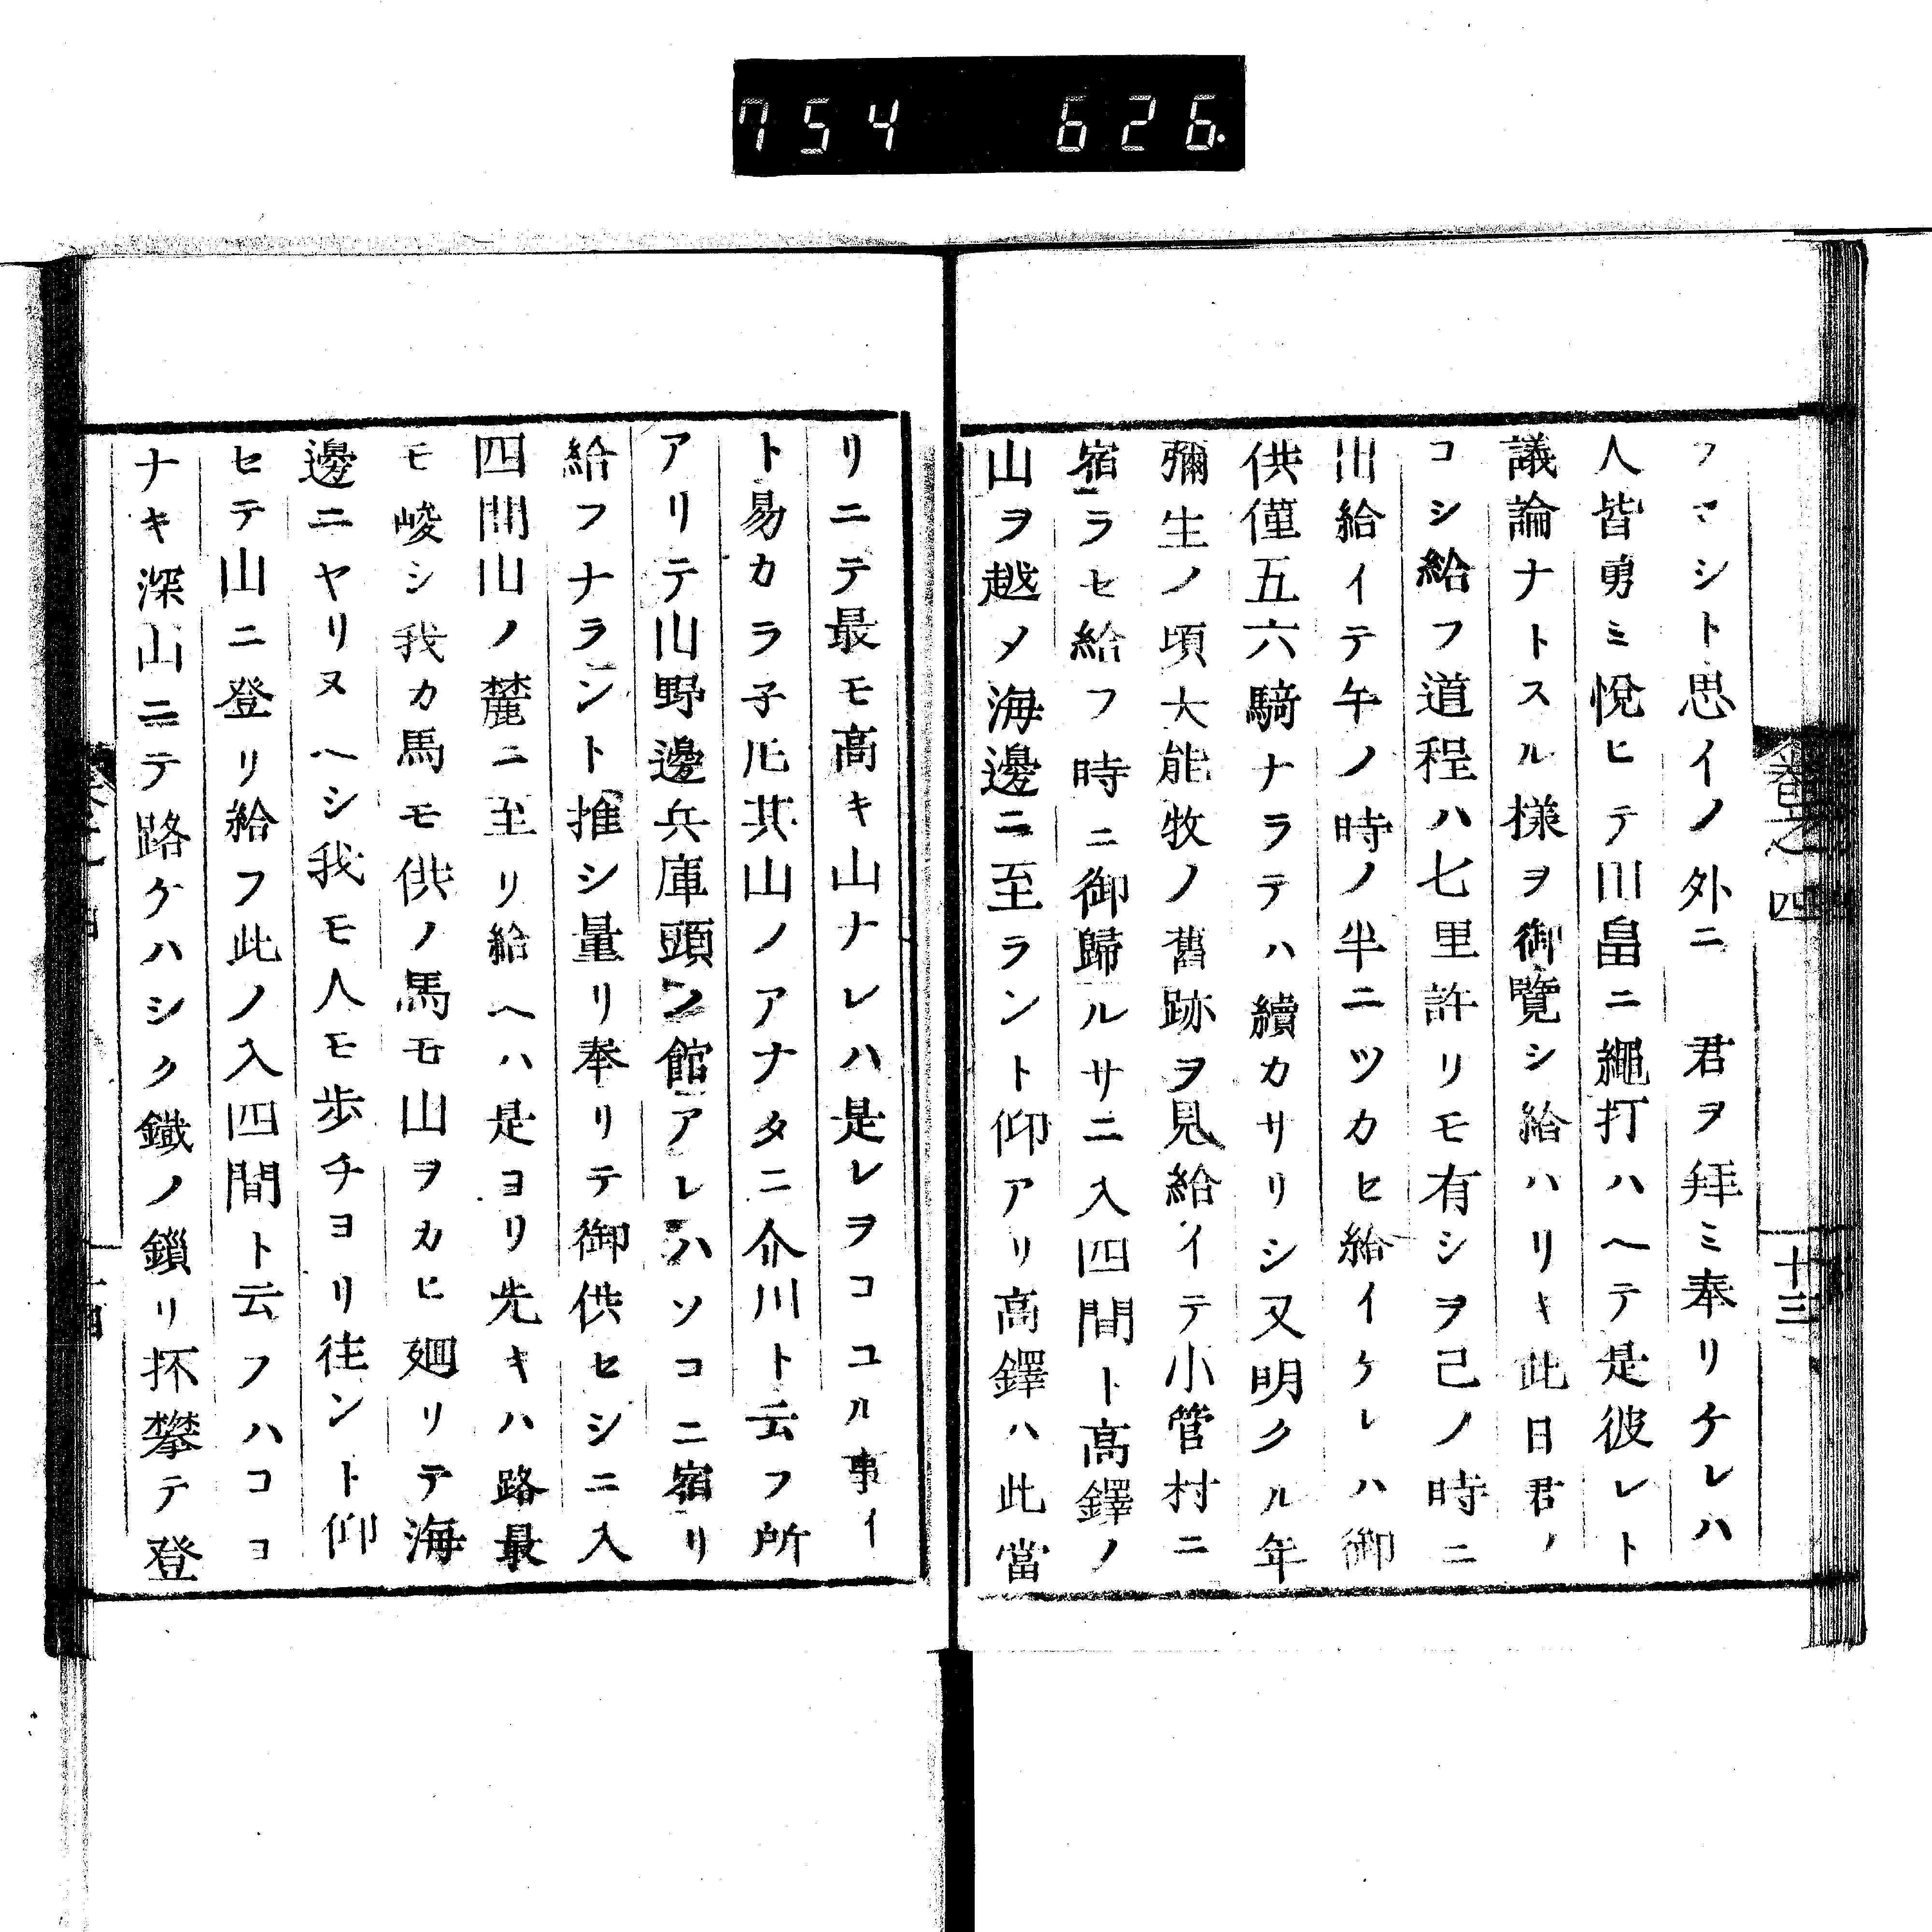 754 626.
卷之四
十三
フマシト思イノ外ニ 君ヲ拜ミ奉リケレハ
人皆勇ミ悅ヒテ川畠ニ繩打ハヘテ是彼レト
議論ナトスル樣ヲ御覽シ給ハリキ此日君ノ
コシ給フ道程ハ七里許リモ有シヲ己ノ時ニ
出給イテ午ノ時ノ半ニツカセ給イケレハ御
供僅五六騎ナラテハ續カサリシ又明クル年
彌生ノ頃大能牧ノ舊跡ヲ見給イテ小管村ニ
宿ラセ給フ時ニ御歸ルサニ入四間ト高鐸ノ
山ヲ越メ海邊ニ至ラント仰アリ高鐸ハ此當
リニテ最モ高キ山ナレハ是レヲコユル事イ
ト易カラ子𪜈其山ノアナタニ介川ト云フ所
アリテ山野邊兵庫頭ノ館アレハソコニ宿リ
給フナラント推シ量リ奉リテ御供セシニ入
四間山ノ麓ニ至リ給ヘハ是ヨリ先キハ路最
モ峻シ我カ馬モ供ノ馬モ山ヲカヒ廻リテ海
邊ニヤリヌヘシ我モ人モ步チヨリ往ント仰
セテ山ニ登リ給フ此ノ入四間ト云フハコヨ
ナキ深山ニテ路ケハシク鐵ノ鎖リ抔攀テ登